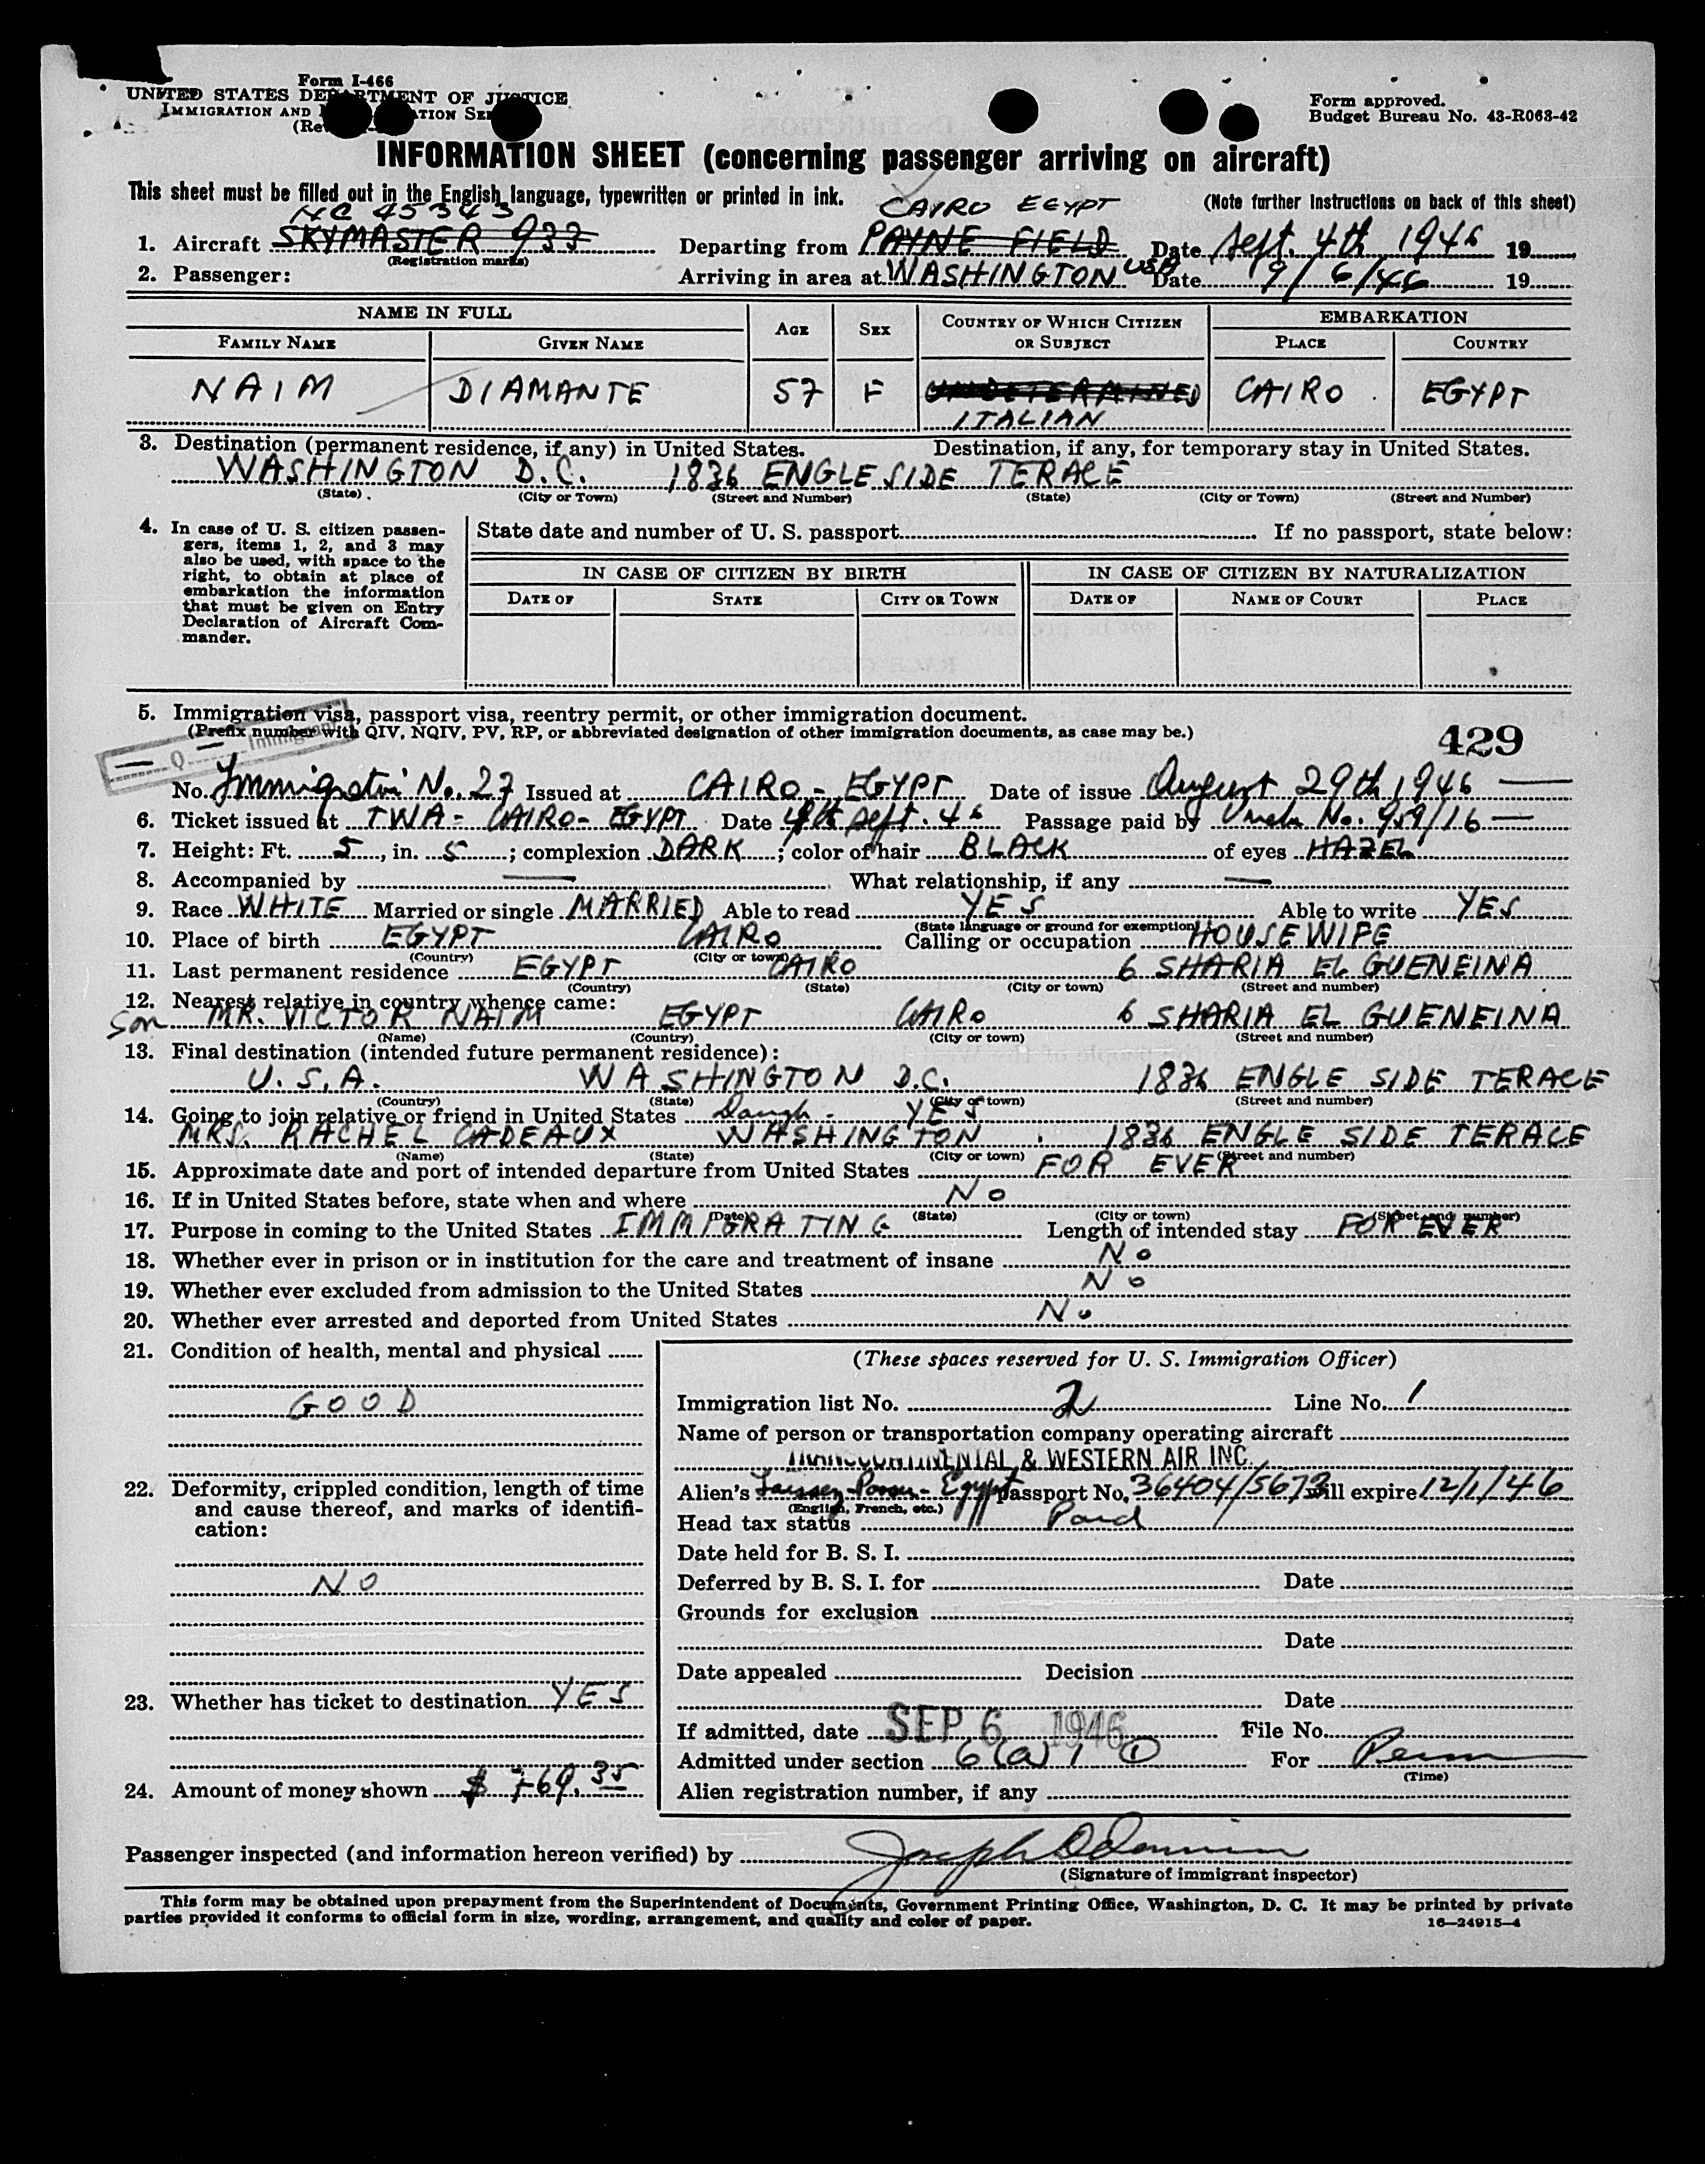 Form I-466
UNITED STATES DEPARTMENT OF JUSTICE
IMMIGRATION AND
Form approved.
Budget Bureau No. 43-R063-42
INFORMATION SHEET (concerning passenger arriving on aircraft)
This sheet must be filled out in the English language, typewritten or printed in ink. (Note further instructions on back of this sheet)
NC 45343 CAIRO EGYPT
1. Aircraft SKYMASTER 933 Departing from PAYNE FIELD Date Sept. 4th 1946 19
(Registration marks)
2. Passenger: Arriving in area at WASHINGTON USA Date 9/6/46 19
NAME IN FULL AGE SEX COUNTRY OF WHICH CITIZEN OR SUBJECT EMBARKATION
FAMILY NAME GIVEN NAME PLACE COUNTRY
NAIM DIAMANTE 57 F UNDETERMINED CAIRO EGYPT
ITALIAN
3. Destination (permanent residence, if any) in United States. Destination, if any, for temporary stay in United States.
WASHINGTON D.C. 1836 ENGLE SIDE TERACE
(State) (City or Town) (Street and Number) (State) (City or Town) (Street and Number)
4. In case of U. S. citizen passen-
gers, items 1, 2, and 3 may
also be used, with space to the
right, to obtain at place of
embarkation the information
that must be given on Entry
Declaration of Aircraft Com-
mander.
State date and number of U. S. passport If no passport, state below:
IN CASE OF CITIZEN BY BIRTH IN CASE OF CITIZEN BY NATURALIZATION
DATE OF STATE CITY OR TOWN DATE OF NAME OF COURT PLACE
5. Immigration visa, passport visa, reentry permit, or other immigration document.
(Prefix number with QIV, NQIV, PV, RP, or abbreviated designation of other immigration documents, as case may be.)
429
Q Immigrant
No. Immigration No. 27 Issued at CAIRO - EGYPT Date of issue August 29th 1946
6. Ticket issued at TWA - CAIRO - EGYPT Date 4th Sept. 46 Passage paid by No. 959/16
7. Height: Ft. 5, in. 5; complexion DARK; color of hair BLACK of eyes HAZEL
8. Accompanied by — What relationship, if any —
9. Race WHITE Married or single MARRIED Able to read YES Able to write YES
(State language or ground for exemption)
10. Place of birth EGYPT CAIRO Calling or occupation HOUSEWIFE
(Country) (City or town)
11. Last permanent residence EGYPT CAIRO 6 SHARIA EL GUENEINA
(Country) (State) (City or town) (Street and number)
12. Nearest relative in country whence came:
Son MR. VICTOR NAIM EGYPT CAIRO 6 SHARIA EL GUENEINA
(Name) (Country) (City or town) (Street and number)
13. Final destination (intended future permanent residence):
U.S.A. WASHINGTON D.C. 1836 ENGLE SIDE TERACE
(Country) (State) (City or town) (Street and number)
14. Going to join relative or friend in United States Daugh - YES
MRS. RACHEL CADEAUX WASHINGTON . 1836 ENGLE SIDE TERACE
(Name) (State) (City or town) (Street and number)
15. Approximate date and port of intended departure from United States FOR EVER
16. If in United States before, state when and where No
(Date) (State) (City or town) (Street and number)
17. Purpose in coming to the United States IMMIGRATING Length of intended stay FOR EVER
18. Whether ever in prison or in institution for the care and treatment of insane No
19. Whether ever excluded from admission to the United States No
20. Whether ever arrested and deported from United States No
21. Condition of health, mental and physical
GOOD
22. Deformity, crippled condition, length of time
and cause thereof, and marks of identifi-
cation:
NO
23. Whether has ticket to destination YES
24. Amount of money shown $ 769.35
(These spaces reserved for U. S. Immigration Officer)
Immigration list No. 2 Line No. 1
Name of person or transportation company operating aircraft
TRANSCONTINENTAL & WESTERN AIR INC.
Alien's Laissez-Passer - Egypt passport No. 36404/5673 will expire 12/1/46
(English, French, etc.)
Head tax status Paid
Date held for B. S. I.
Deferred by B. S. I. for Date
Grounds for exclusion
Date
Date appealed Decision
Date
If admitted, date SEP 6 1946 File No.
Admitted under section 6(a) 1 ① For Perm
(Time)
Alien registration number, if any
Passenger inspected (and information hereon verified) by Joseph
(Signature of immigrant inspector)
This form may be obtained upon prepayment from the Superintendent of Documents, Government Printing Office, Washington, D. C. It may be printed by private
parties provided it conforms to official form in size, wording, arrangement, and quality and color of paper. 16—24915-4